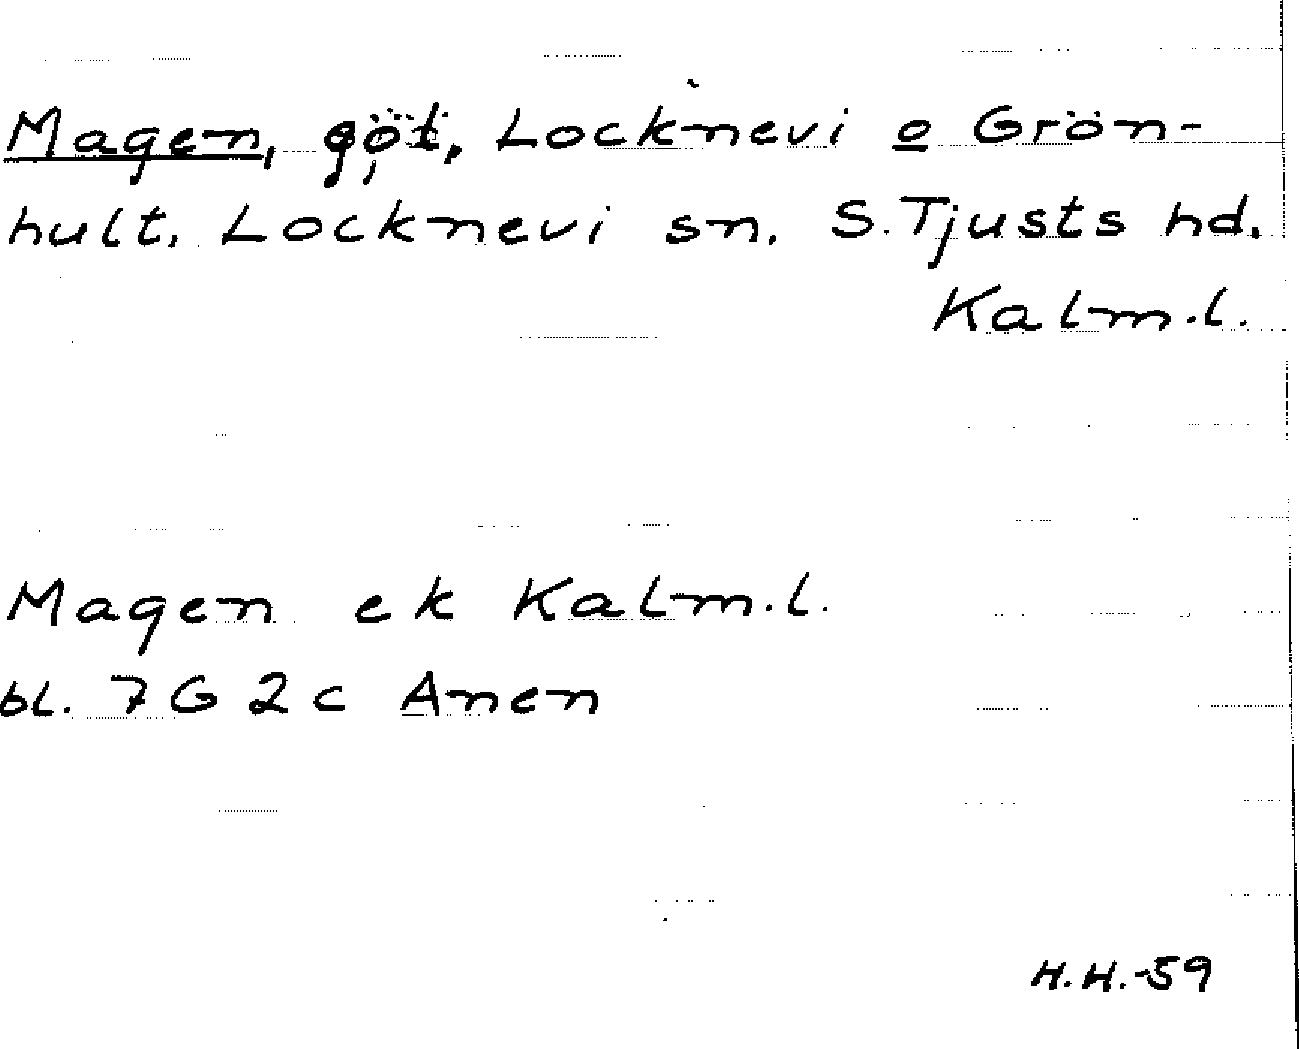 Magen, göt, Locknevi o Grön-
hult. Locknevi sn. S.Tjusts hd.
Kalm.l.
Magen ek Kalm.l.
bl. 7G 2c Anen
H.H.-59